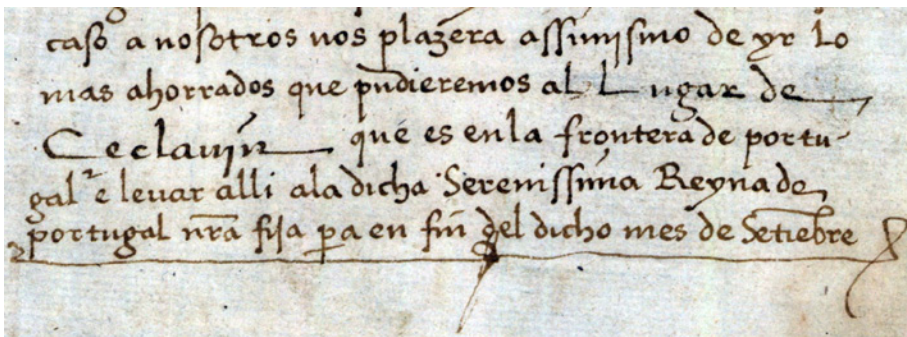 caso a nosotros nos plazera assimismo de yr Lo
mas ahorrados que pudieremos al Lugar de
Ceclauin que es en la frontera de portu-
gal e leuar alli a la dicha Serenissima Reyna de
portugal nr̃a fija pa en fin del dicho mes de Setiẽbre